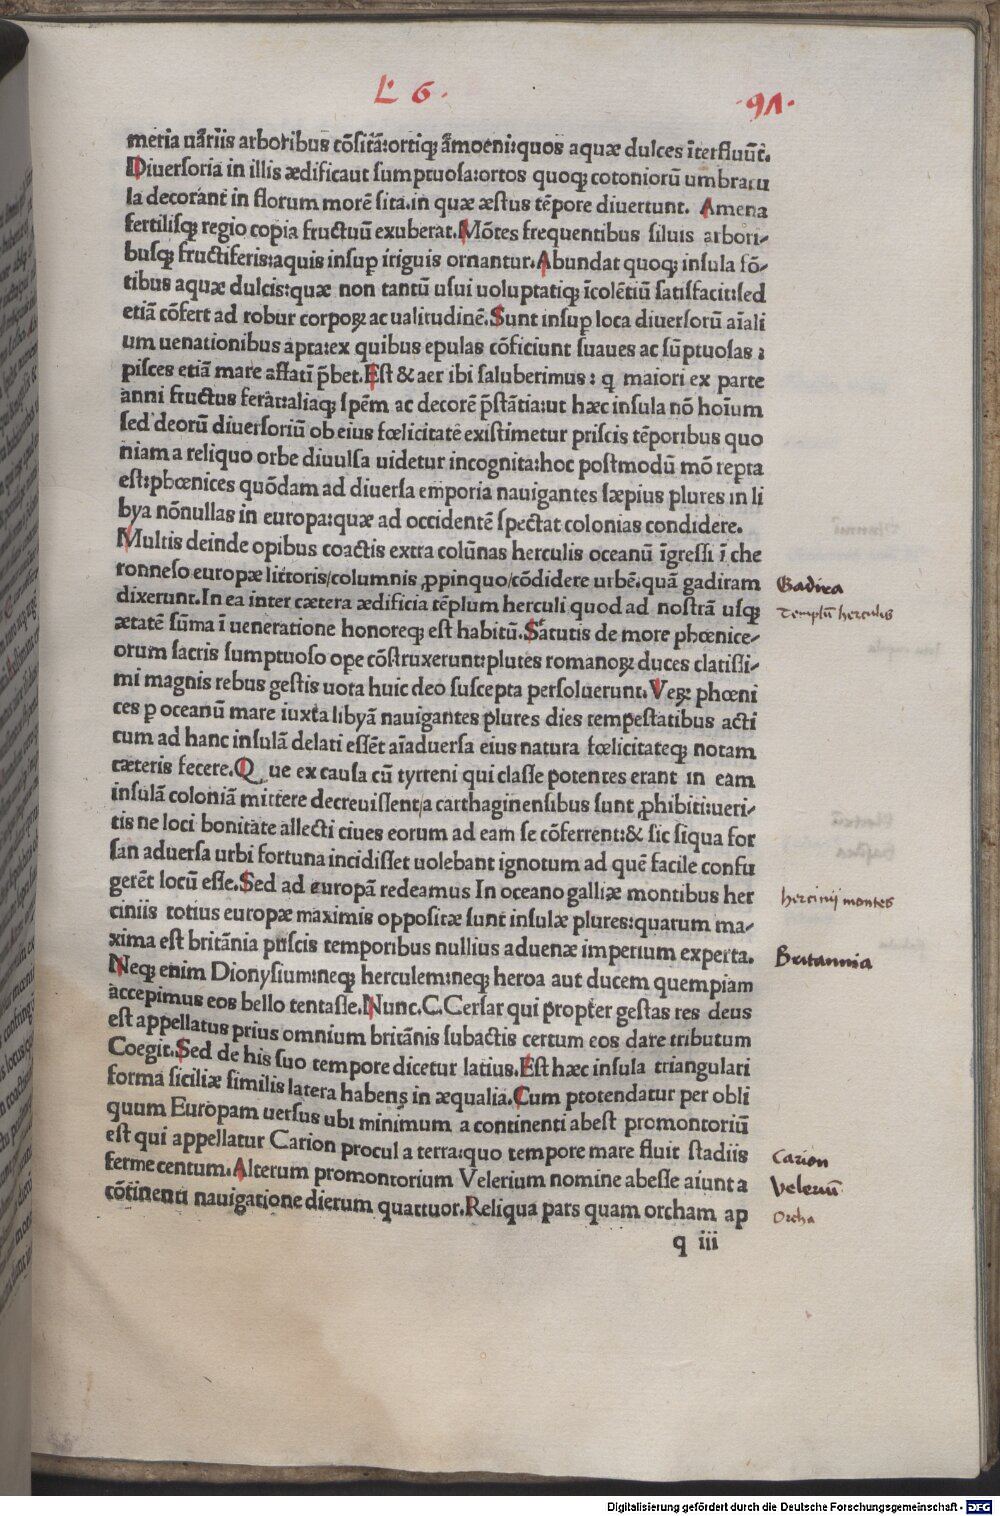 L 6 ·
· 91 ·
meria uariis arboribus cōsita: ortiq; amoeni: quos aquæ dulces īterfluūt.
Diuersoria in illis ædificant sumptuosa: ortos quoq; cotoniorū umbracu
la decorant in florum morē sita. in quæ æstus tēpore diuertunt. Amena
fertilisq; regio copia fructuū exuberat. Mōtes frequentibus siluis arbori-
busq; fructiferis: aquis insup irriguis ornantur. Abundat quoq; insula fō-
tibus aquæ dulcis: quæ non tantū usui uoluptatiq; īcolētiū satisfacit: sed
etiā cōfert ad robur corpoꝝ ac ualitudinē. Sunt insup loca diuersorū aīali
um uenationibus apta: ex quibus epulas cōficiunt suaues ac sūptuosas:
pisces etiā mare affatī p̄bet. Est & aer ibi saluberimus: q maiori ex parte
anni fructus ferat: aliaq; spēm ac decorē p̄stātia: ut hæc insula nō hoīum
sed deorū diuersoriū ob eius fœlicitatē existimetur priscis tēporibus quo
niam a reliquo orbe diuulsa uidetur incognita: hoc postmodū mō repta
est: phœnices quōdam ad diuersa emporia nauigantes sæpius plures in li
bya nōnullas in europa: quæ ad occidentē spectat colonias condidere.
Multis deinde opibus coactis extra colūnas herculis oceanū īgressi ī che
ronneso europæ littoris/columnis ꝓpinquo/cōdidere urbē. quā gadiram
dixerunt. In ea inter cætera ædificia tēplum herculi quod ad nostrā usq;
ætatē sūma ī ueneratione honoreq; est habitū. Satutis de more phœnice-
orum sacris sumptuoso ope cōstruxerunt: plures romanoꝝ duces clarissi-
mi magnis rebus gestis uota huic deo suscepta persoluerunt. Veꝝ phœni
ces p oceanū mare iuxta libyā nauigantes plures dies tempestatibus acti
cum ad hanc insulā delati essēt aīaduersa eius natura fœlicitateq; notam
cæteris fecere. Que ex causa cū tyrreni qui classe potentes erant in eam
insulā coloniā mittere decreuissent/a carthaginensibus sunt ꝓhibiti: ueri-
tis ne loci bonitate allecti ciues eorum ad eam se cōferrent: & sic siqua for
san aduersa urbi fortuna incidisset uolebant ignotum ad quē facile confu
gerēt locū esse. Sed ad europā redeamus In oceano galliæ montibus her
ciniis totius europæ maximis oppositæ sunt insulæ plures: quarum ma-
xima est britānia priscis temporibus nullius aduenæ imperium experta.
Neq; enim Dionysium: neq; herculem: neq; heroa aut ducem quempiam
accepimus eos bello tentasse. Nunc. C. Cersar qui propter gestas res deus
est appellatus prius omnium britānis subactis certum eos dare tributum
Coegit. Sed de his suo tempore dicetur latius. Est hæc insula triangulari
forma siciliæ similis latera habens in æqualia. Cum ptotendatur per obli
quum Europam uersus ubi minimum a continenti abest promontoriū
est qui appellatur Carion procul a terra: quo tempore mare fluit stadiis
ferme centum. Alterum promontorium Velerium nomine abesse aiunt a
cōtinenti nauigatione dierum quattuor. Reliqua pars quam orcham ap
q iii
Gadira
Templū herculis
hercinij montes
Britannia
Carion
Veleriū
Orcha
Digitalisierung gefördert durch die Deutsche Forschungsgemeinschaft - DFG